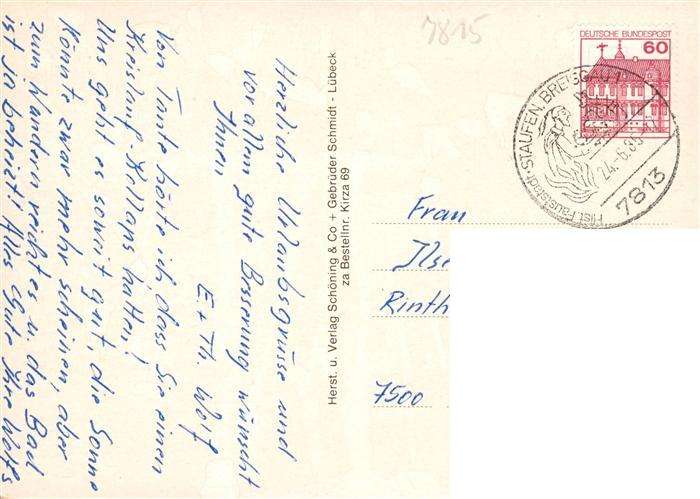 Herzliche Urlaubsgrüsse und
vor allem gute Besserung wünscht
Ihnen
E + Th. Wolf
Von Tante hörte ich dass Sie einen
Kreislauf-Kollaps hatten!
Uns geht es soweit gut, die Sonne
könnte zwar mehr scheinen, aber
zum Wandern reicht es u. das Bad
ist ja beheizt! Alles Gute Ihre Wolfs
Herst. u. Verlag Schöning & Co + Gebrüder Schmidt - Lübeck
za Bestellnr. Kirza 69
7815
DEUTSCHE BUNDESPOST
60
STAUFEN, BREISGAU 1
24.-6.85
7813
Hist. Fauststadt
Frau
Ilse
Rinth
7500